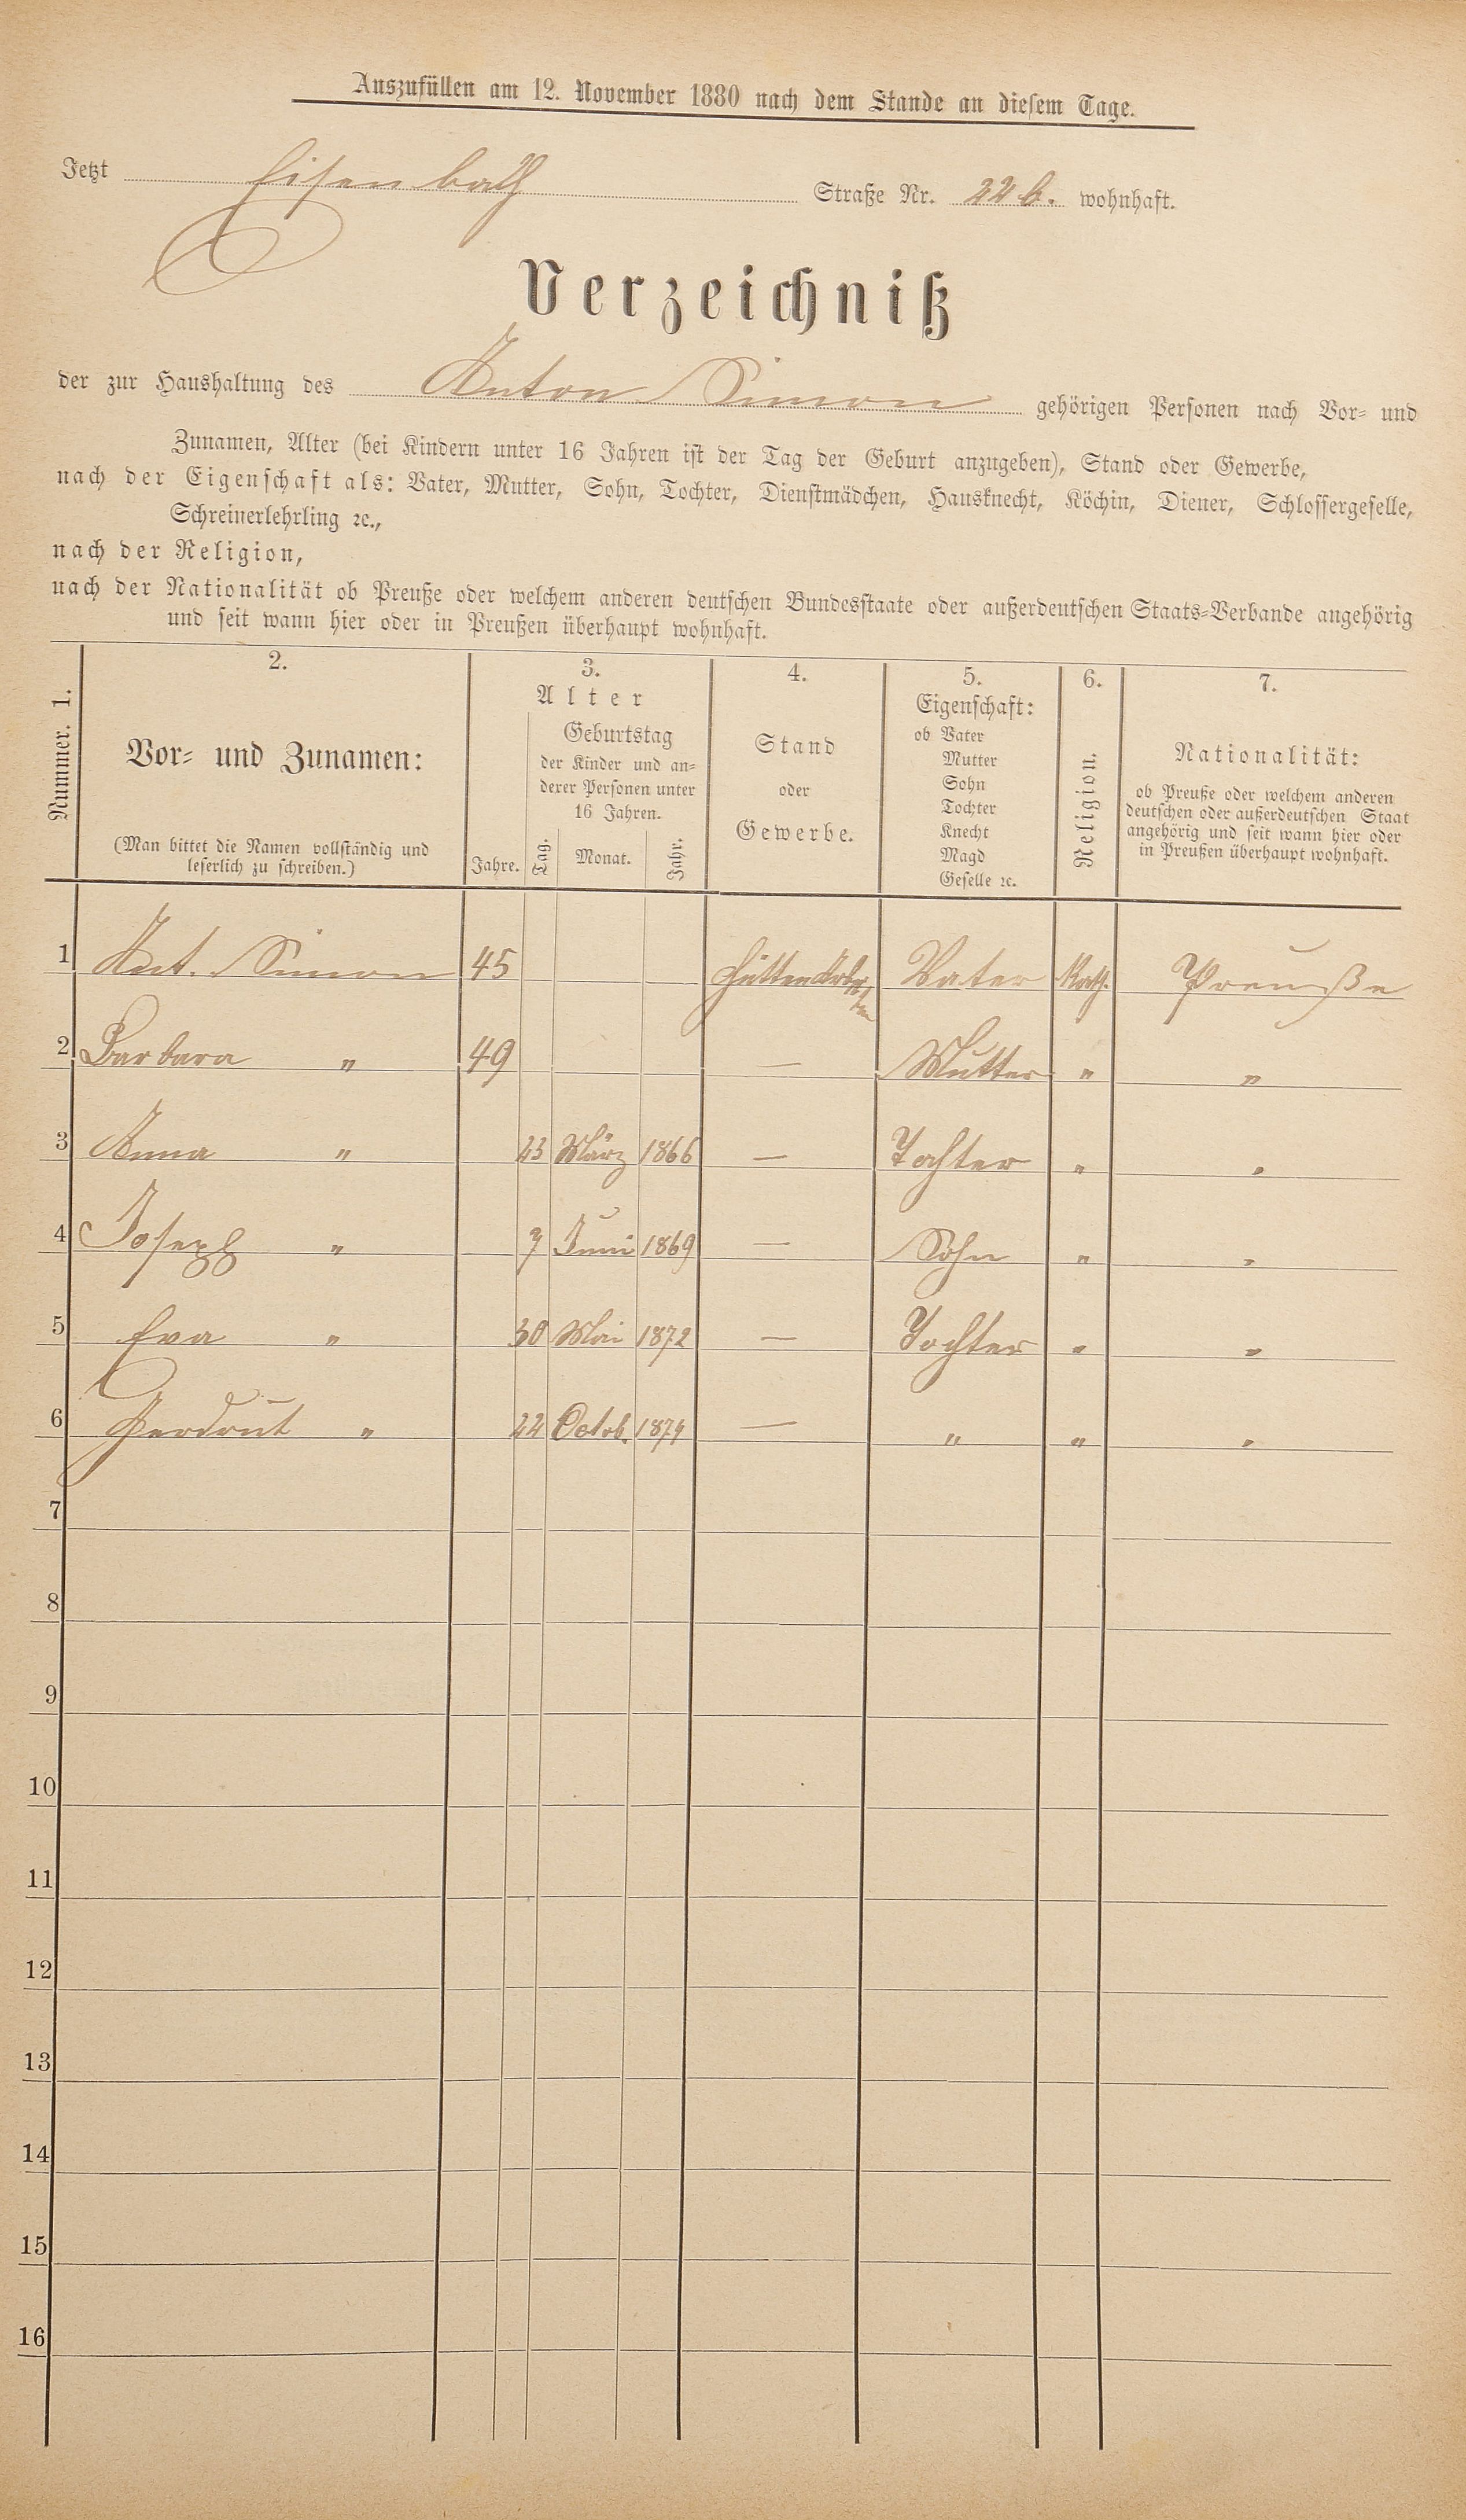 Auszufüllen am 12. November 1880 nach dem Stande an diesem Tage.
Jetzt Eisenbah Straße Nr. 22 b. wohnhaft.
Verzeichniß
der zur Haushaltung des Anton Simon gehörigen Personen nach Vor- und
Zunamen, Alter (bei Kindern unter 16 Jahren ist der Tag der Geburt anzugeben), Stand oder Gewerbe,
nach der Eigenschaft als: Vater, Mutter, Sohn, Tochter, Dienstmädchen, Hausknecht, Köchin, Diener, Schlossergeselle,
Schreinerlehrling ꝛc.,
nach der Religion,
nach der Nationalität ob Preuße oder welchem anderen deutschen Bundesstaate oder außerdeutschen Staats-Verbande angehörig
und seit wann hier oder in Preußen überhaupt wohnhaft.
Nummer. 1.
2.
Vor- und Zunamen:
(Man bittet die Namen vollständig und
leserlich zu schreiben.)
3.
Alter
Jahre.
Geburtstag
der Kinder und an-
derer Personen unter
16 Jahren.
Tag. Monat. Jahr.
4.
Stand
oder
Gewerbe.
5.
Eigenschaft:
ob Vater
Mutter
Sohn
Tochter
Knecht
Magd
Geselle ꝛc.
6.
Religion.
7.
Nationalität:
ob Preuße oder welchem anderen
deutschen oder außerdeutschen Staat
angehörig und seit wann hier oder
in Preußen überhaupt wohnhaft.
1 Ant. Simon 45 Vater Kath. Preuße
2 Barbara " 49 — Mutter " "
3 Anna " 23 März 1866 — Tochter " "
4 Joseph " Juni 1869 — Sohn " "
5 Eva " 30 Mai 1872 — Tochter " "
6 Gerdrut " 22 Octob. 1874 — " " "
7
8
9
10
11
12
13
14
15
16